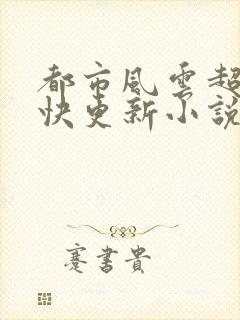 都市風雲超
快更新小說
蹇書貴